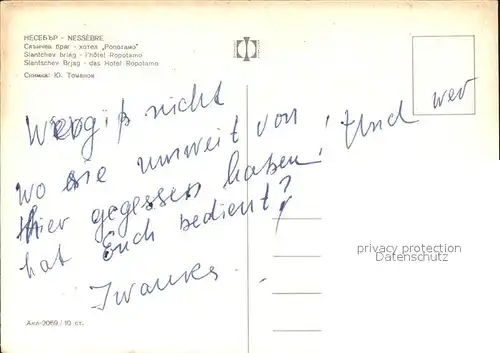 НЕСЕБЪР - NESSÈBRE
Слънчев бряг - хотел „Ропотамо"
Slantchev briag - l'hôtel Ropotamo
Slantschev Brjag - das Hotel Ropotamo
Снимка: Ю. Томанов
Vergiß nicht
wo sie unweit von
hier gegessen haben! Und wer
hat Euch bedient?
Iwanka
privacy protection
Datenschutz
Акл-2069 / 10 ст.